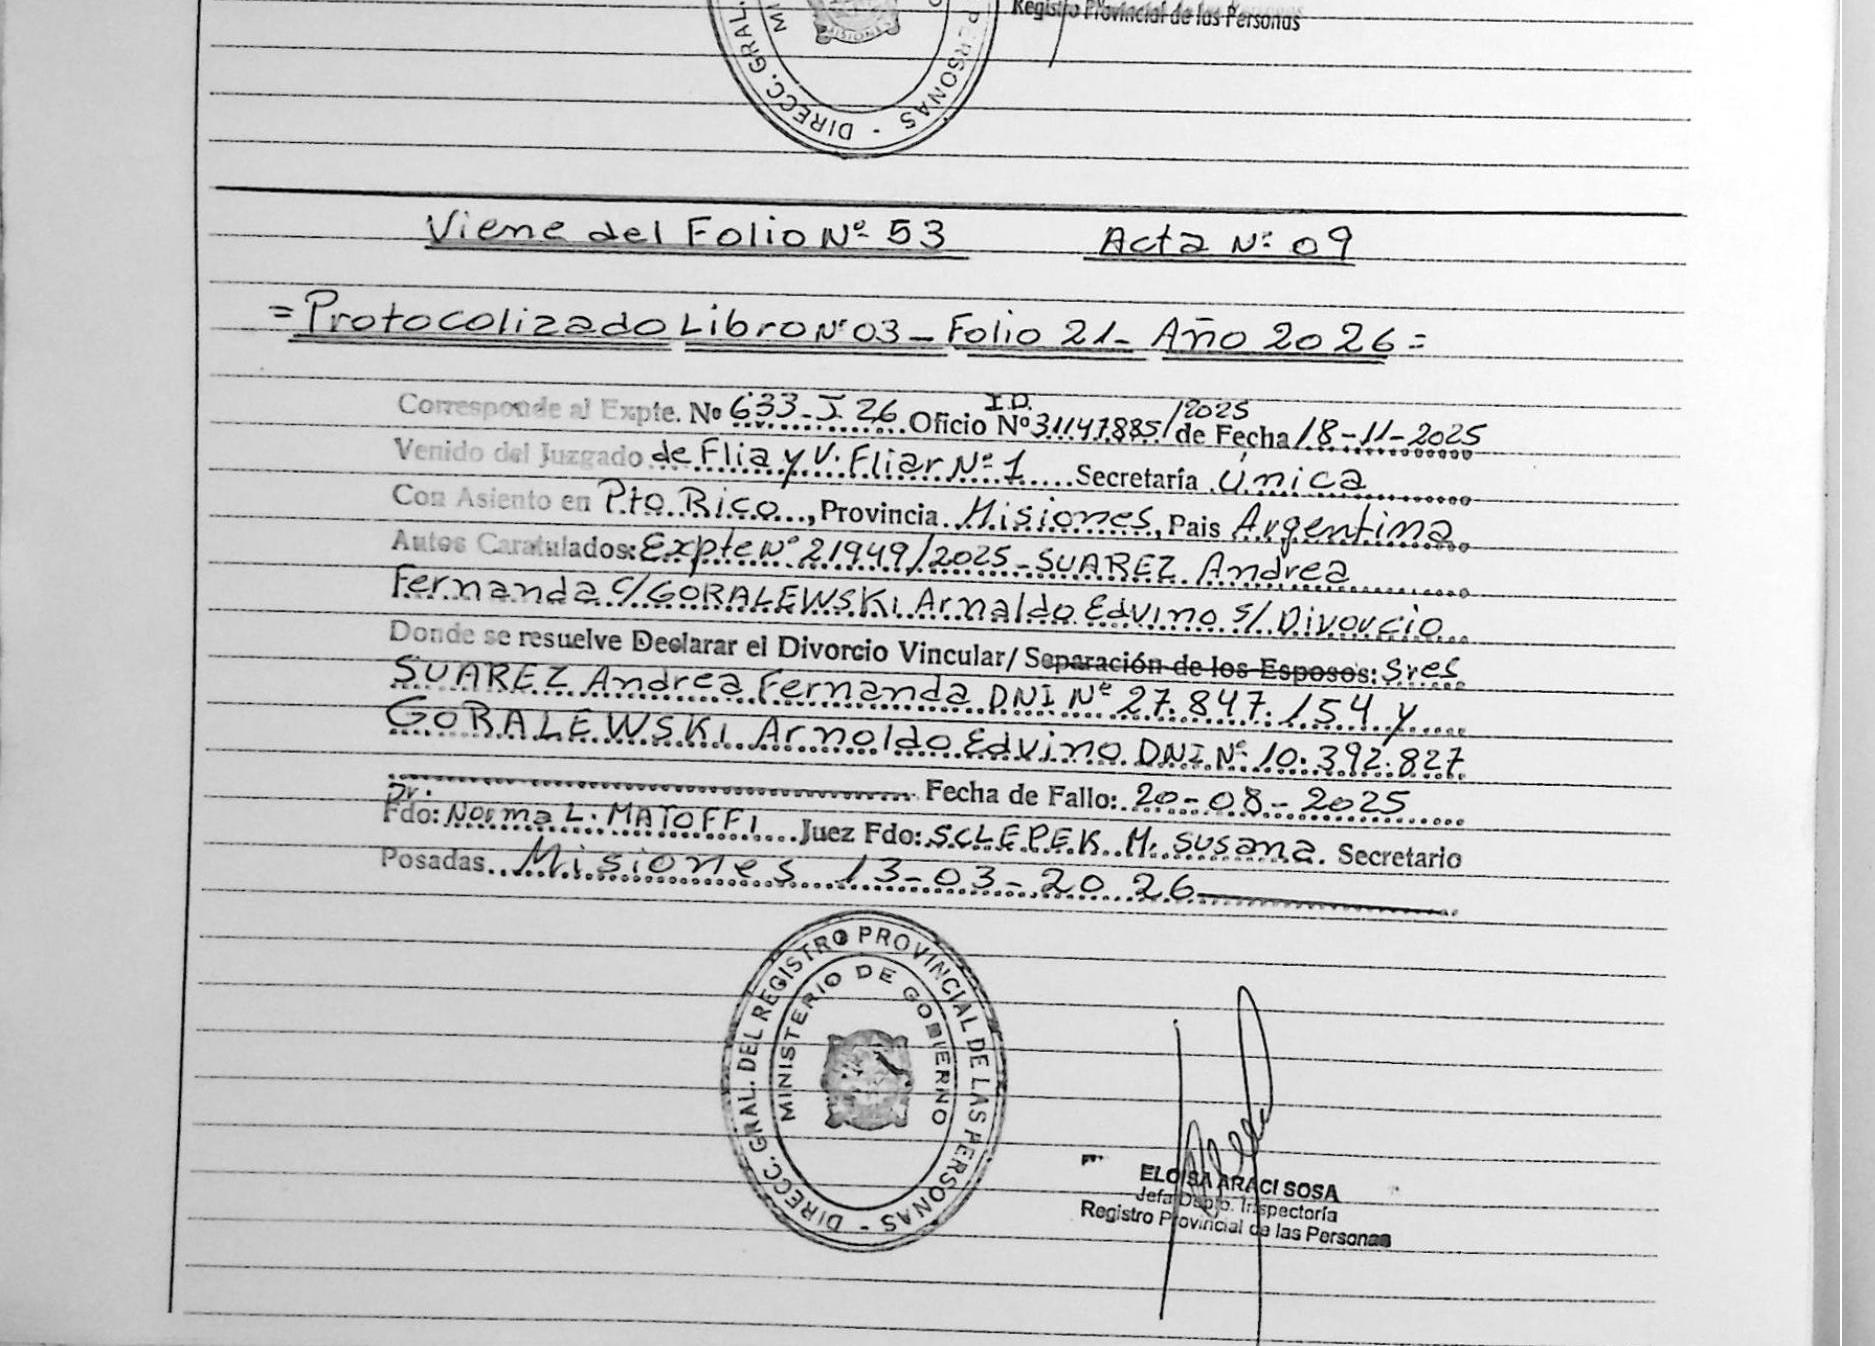 Registro Provincial de las Personas
DIRECC. GRAL. PERSONAS
Viene del Folio Nº 53 Acta Nº 09
= Protocolizado Libro Nº 03 - Folio 21 - Año 2026 =
Corresponde al Expte. Nº 633-I-26 Oficio I.D. Nº 31147885/2025 de Fecha 18-11-2025
Venido del Juzgado de Flia y V. Fliar Nº 1 Secretaría Única
Con Asiento en Pto. Rico, Provincia Misiones, Pais Argentina
Autos Caratulados: Expte Nº 21949/2025 - SUAREZ Andrea
Fernanda C/ GORALEWSKI Arnaldo Edvino S/ Divorcio
Donde se resuelve Declarar el Divorcio Vincular/ Separación de los Esposos: Sres
SUAREZ Andrea Fernanda DNI Nº 27.847.154 y
GORALEWSKI Arnoldo Edvino DNI Nº 10.392.827
Fecha de Fallo: 20-08-2025
Fdo: Dr. Norma L. MATOFFI Juez Fdo: SCLEPEK M. Susana. Secretario
Posadas Misiones 13-03-2026
DIRECC. GRAL. DEL REGISTRO PROVINCIAL DE LAS PERSONAS
MINISTERIO DE GOBIERNO
ELOISA ARACI SOSA
Jefa Dpto. Inspectoría
Registro Provincial de las Personas